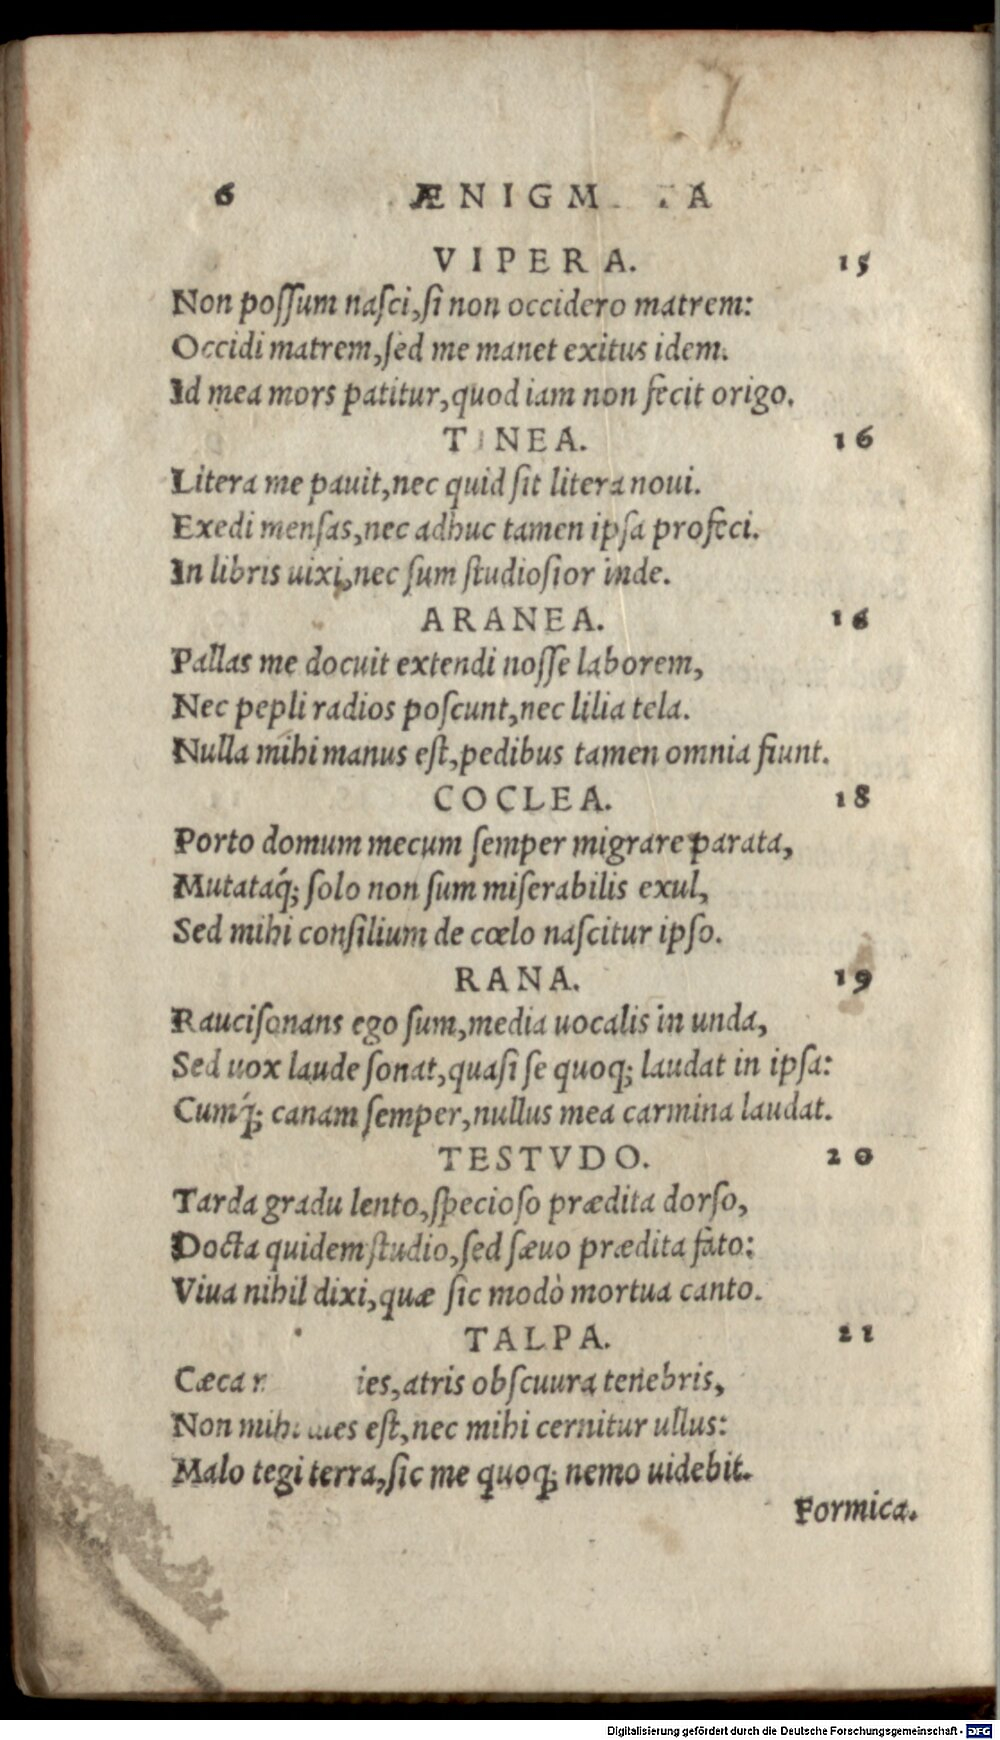 6 ÆNIGM A
VIPERA. 15
Non poſſum naſci, ſi non occidero matrem:
Occidi matrem, ſed me manet exitus idem.
Id mea mors patitur, quod iam non fecit origo.
TINEA. 16
Litera me pauit, nec quid ſit litera noui.
Exedi menſas, nec adhuc tamen ipſa profeci.
In libris uixi, nec ſum ſtudioſior inde.
ARANEA. 16
Pallas me docuit extendi noſſe laborem,
Nec pepli radios poſcunt, nec lilia tela.
Nulla mihi manus eſt, pedibus tamen omnia fiunt.
COCLEA. 18
Porto domum mecum ſemper migrare parata,
Mutataq́; ſolo non ſum miſerabilis exul,
Sed mihi conſilium de cœlo naſcitur ipſo.
RANA. 19
Rauciſonans ego ſum, media uocalis in unda,
Sed uox laude ſonat, quaſi ſe quoq; laudat in ipſa:
Cumq́; canam ſemper, nullus mea carmina laudat.
TESTVDO. 20
Tarda gradu lento, ſpecioſo prædita dorſo,
Docta quidem ſtudio, ſed ſæuo prædita fato:
Viua nihil dixi, quæ ſic modò mortua canto.
TALPA. 21
Cæca ies, atris obſcuura tenebris,
Non mihi dies eſt, nec mihi cernitur ullus:
Malo tegi terra, ſic me quoq; nemo uidebit.
Formica.
Digitalisierung gefördert durch die Deutsche Forschungsgemeinschaft - DFG